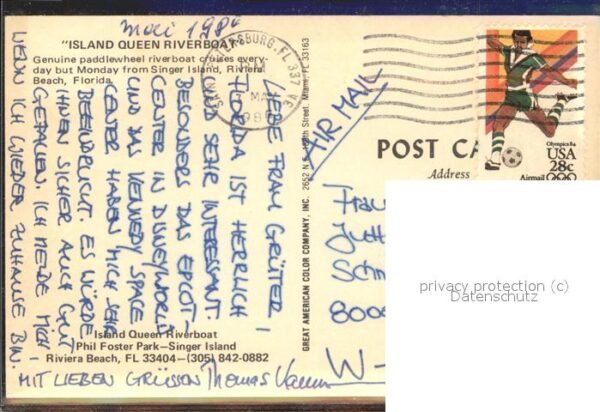 Mai 198
"ISLAND QUEEN RIVERBOAT"
Genuine paddlewheel riverboat cruises every-
day but Monday from Singer Island, Riviera
Beach, Florida.
LIEBE FRAU GRÜTER!
FLORIDA IST HERRLICH
UND SEHR INTERESSANT.
BESONDERS DAS EPCOT-
CENTER IN DISNEYWORLD
UND DAS KENNEDY SPACE
CENTER HABEN MICH SEHR
BEEINDRUCKT. ES WÜRDE
IHNEN SICHER AUCH GUT
GEFALLEN. ICH MELDE MICH
WENN ICH WIEDER ZUHAUSE BIN.
MIT LIEBEN GRÜSSEN Thomas
Island Queen Riverboat
Phil Foster Park—Singer Island
Riviera Beach, FL 33404—(305) 842-0882
GREAT AMERICAN COLOR COMPANY, INC. Street, Miami, FL 33163
FL 337
AIR MAIL
POST CA
Address
Frau
Jutt
Sch
800
W-
Olympics 84
USA
28c
Airmail
privacy protection (c)
Datenschutz